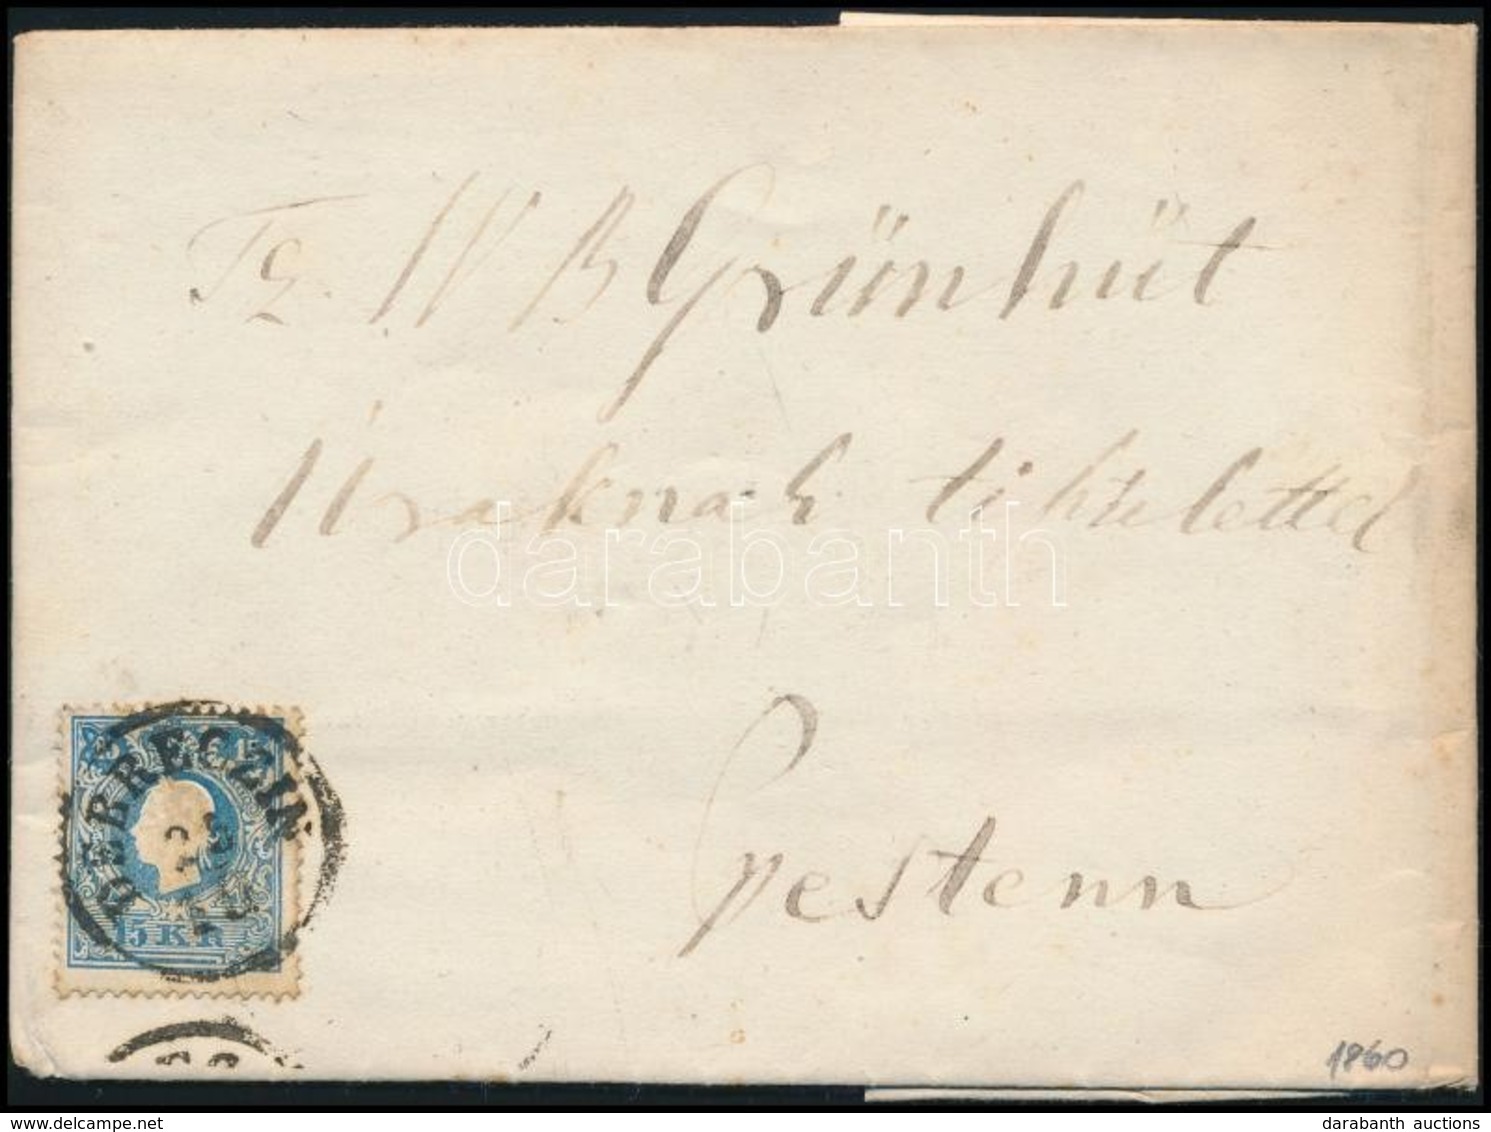 Tz. W B Grünhüt
Uraknak tisztelettel
darabanth
Pestenn
DEBRECZIN
15 KR
1860
www.delcampe.net
darabanth auctions